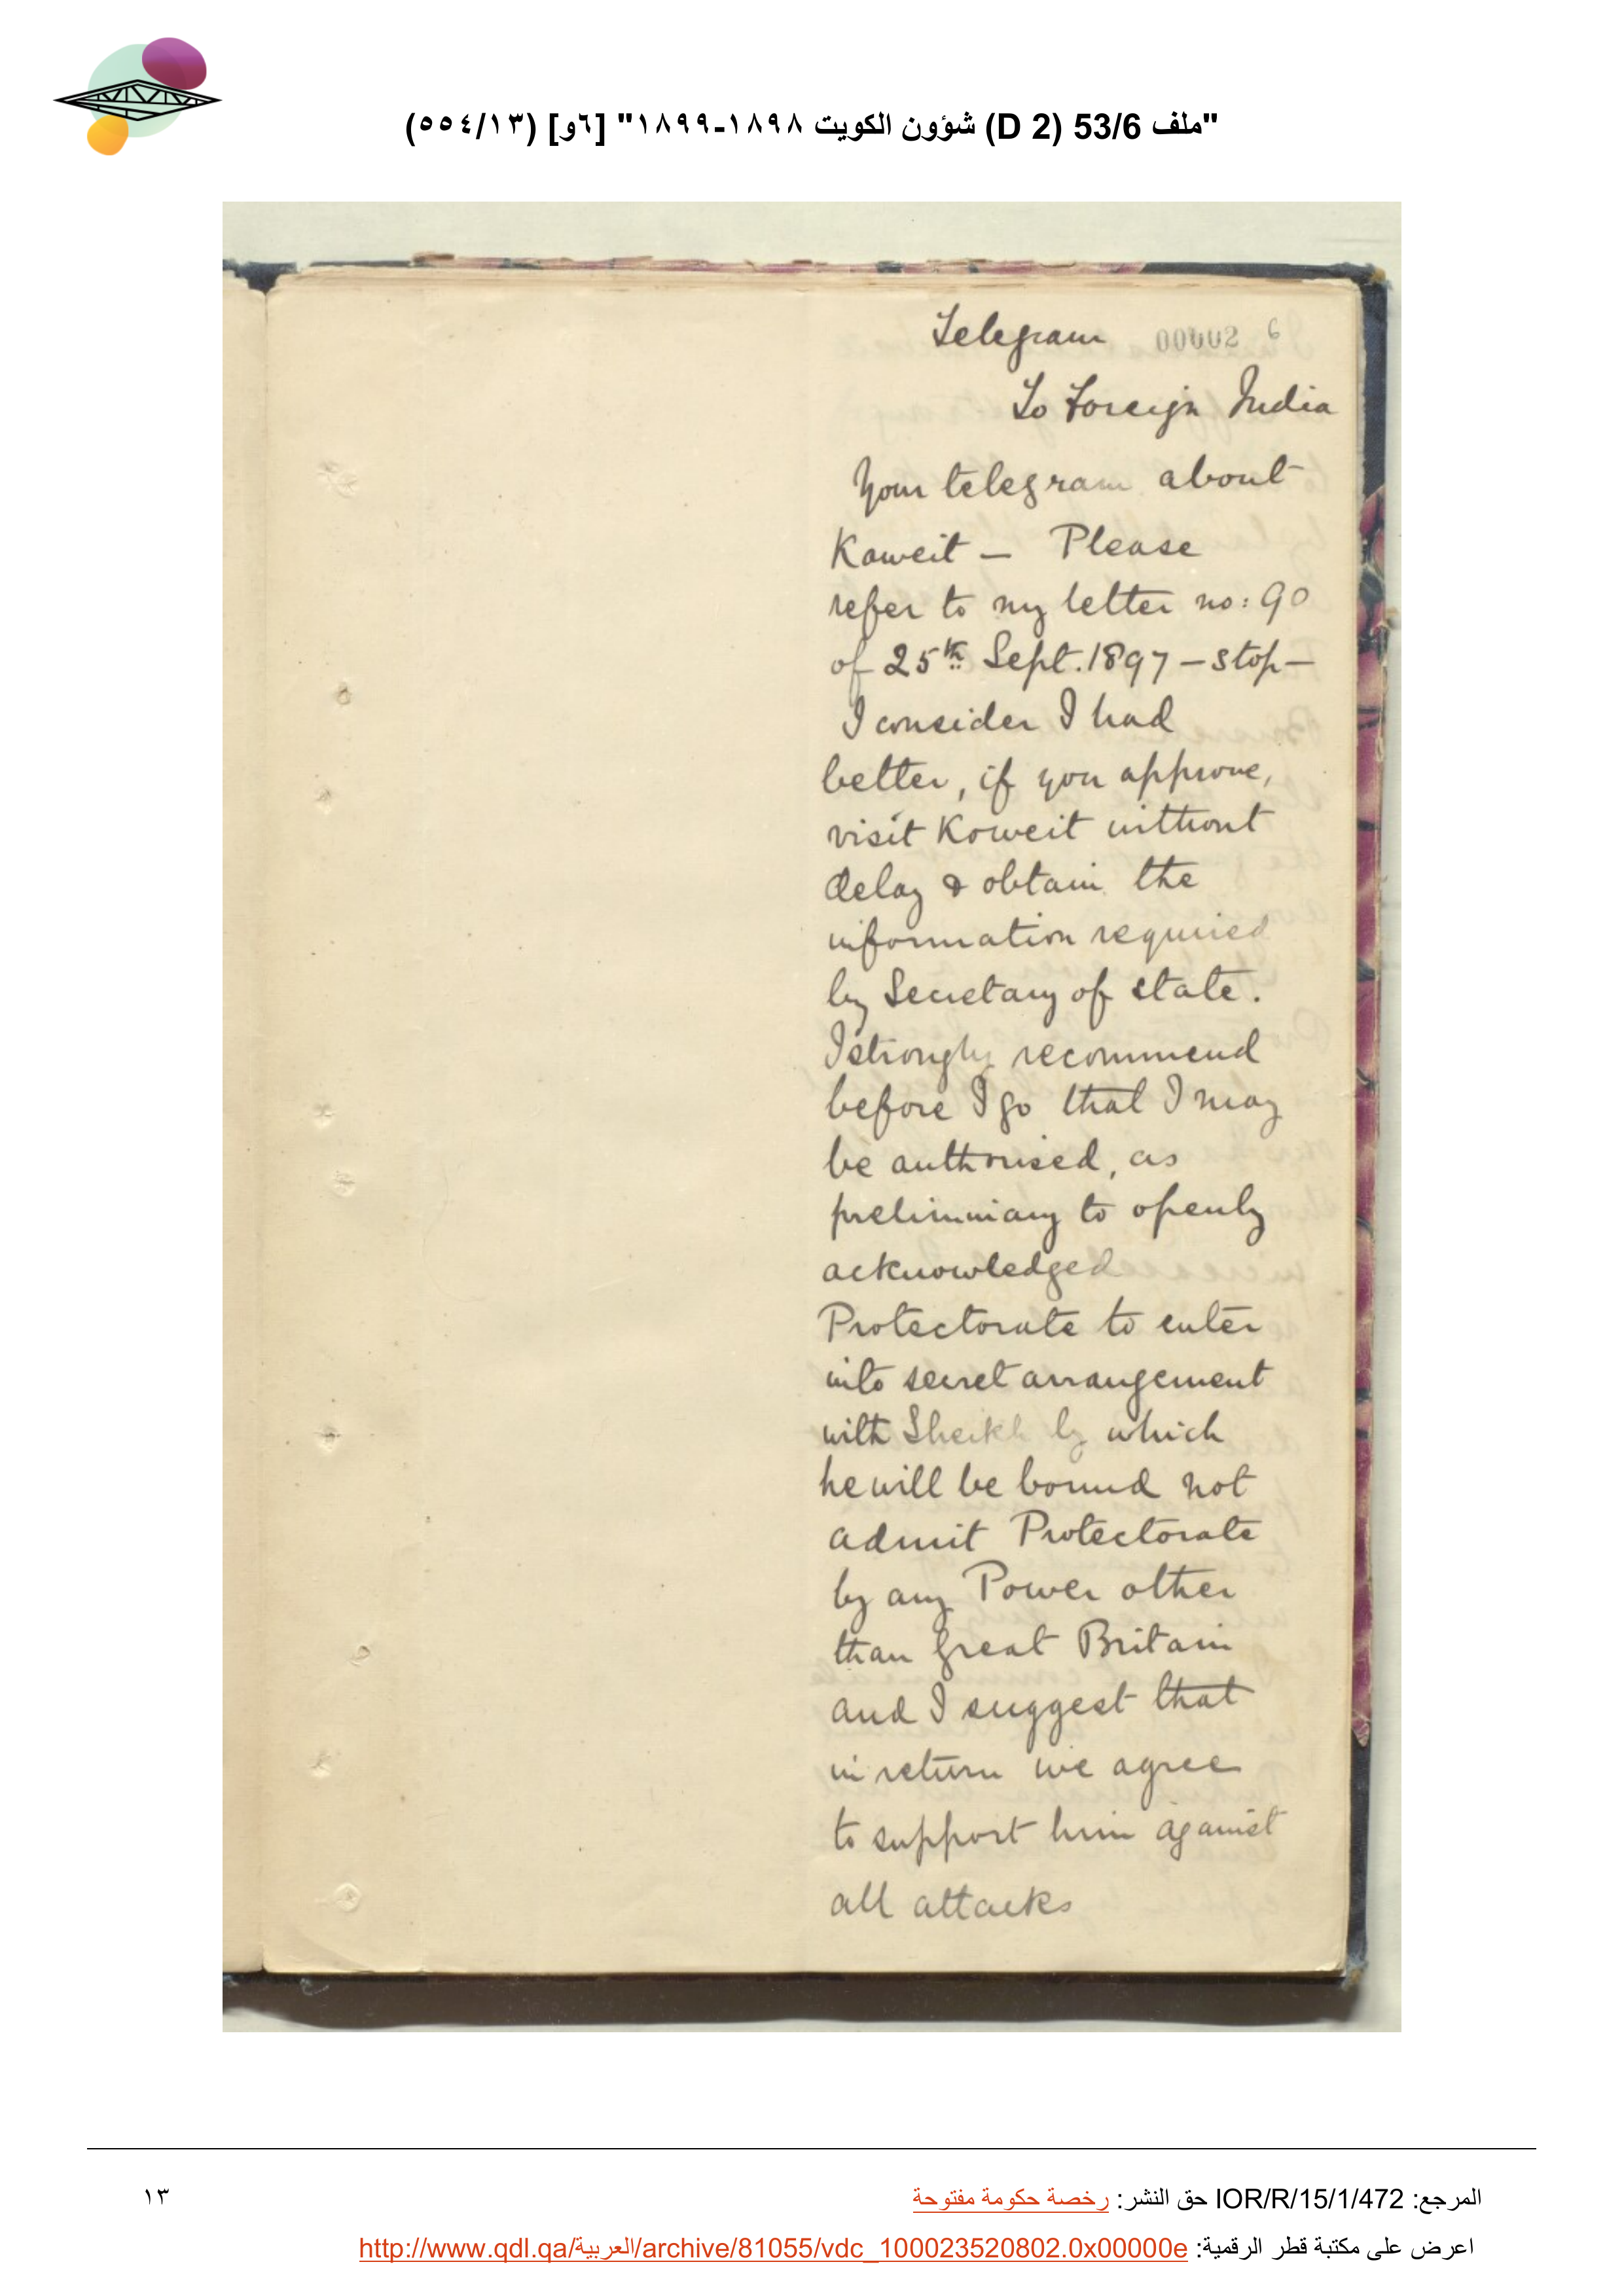 "ملف 53/6 (D 2) شؤون الكويت ١٨٩٨-١٨٩٩" [٦و] (٥٥٤/١٣)
Telegram 00002 6
To Foreign India
Your telegram about
Koweit — Please
refer to my letter no: 90
of 25th Sept. 1897 — stop —
I consider I had
better, if you approve,
visit Koweit without
delay & obtain the
information required
by Secretary of state.
I strongly recommend
before I go that I may
be authorised, as
preliminary to openly
acknowledged
Protectorate to enter
into secret arrangement
with Sheikh by which
he will be bound not
admit Protectorate
by any Power other
than Great Britain
and I suggest that
in return we agree
to support him against
all attacks
المرجع: IOR/R/15/1/472 حق النشر: رخصة حكومة مفتوحة
١٣
اعرض على مكتبة قطر الرقمية: http://www.qdl.qa/العربية/archive/81055/vdc_100023520802.0x00000e